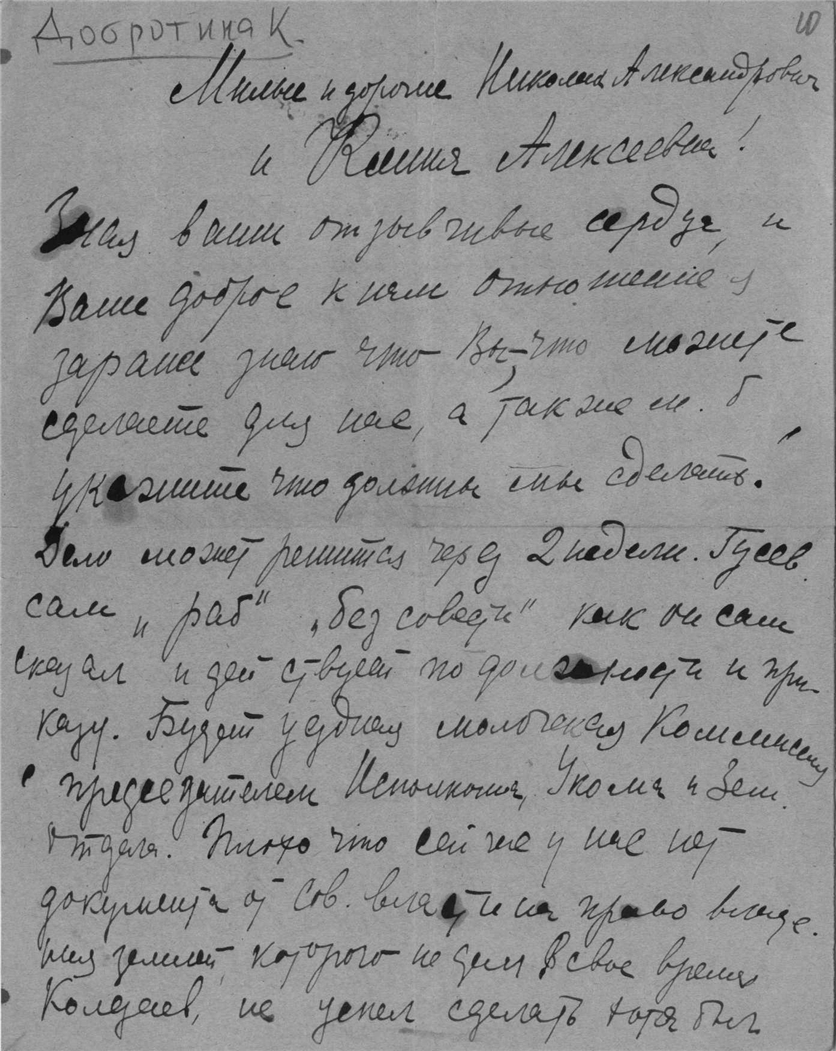 Добротина К. 10
Милые и дорогие Николай Александрович
и Ксения Алексеевна!
Зная ваши отзывчивые сердца, и
Ваше доброе к нам отношение я
заранее знаю что Вы, что можете
сделаете для нас, а также м. б
укажите что должны мы сделать.
Дело может решится через 2 недели. Гусев
сам „раб" „без совести" как он сам
сказал и действует по должности и при-
казу. Будет уездная Коммиссия
с председателем Исполкома, Укома и Зем.
отдела. Плохо что сейчас у нас нет
документа от Сов. власти на право владе-
ния землей, которого не дал в свое время
не успел сделать хотя был